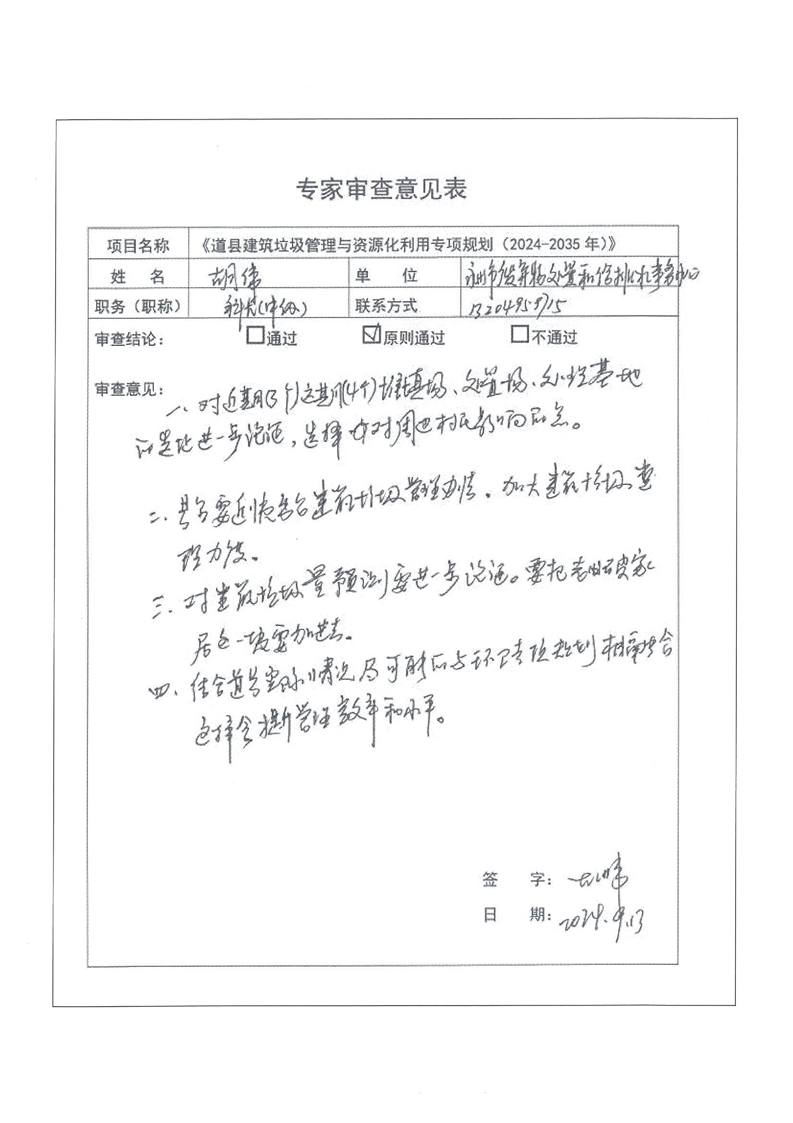 专家审查意见表
项目名称 《道县建筑垃圾管理与资源化利用专项规划（2024-2035年）》
姓 名 胡伟 单 位 永州市废弃物处置和 事务中心
职务（职称） 科长(中级) 联系方式
审查结论： □通过 ☑原则通过 □不通过
审查意见：
一、对近期(3个)远期(4个)堆填场、处置场、处理基地
的选址进一步论证，选择 对周边村民影响 点。
二、县 要 建筑垃圾管理办 。加大建筑垃圾管
理力度。
三、对建筑垃圾量预测要进一步论证。要把 家
居 一 要加进去。
四、结合道县实际情况 可 与环卫专项规划相融合
这样会提升管理效率和水平。
签 字： 胡伟
日 期： 2024.9.13